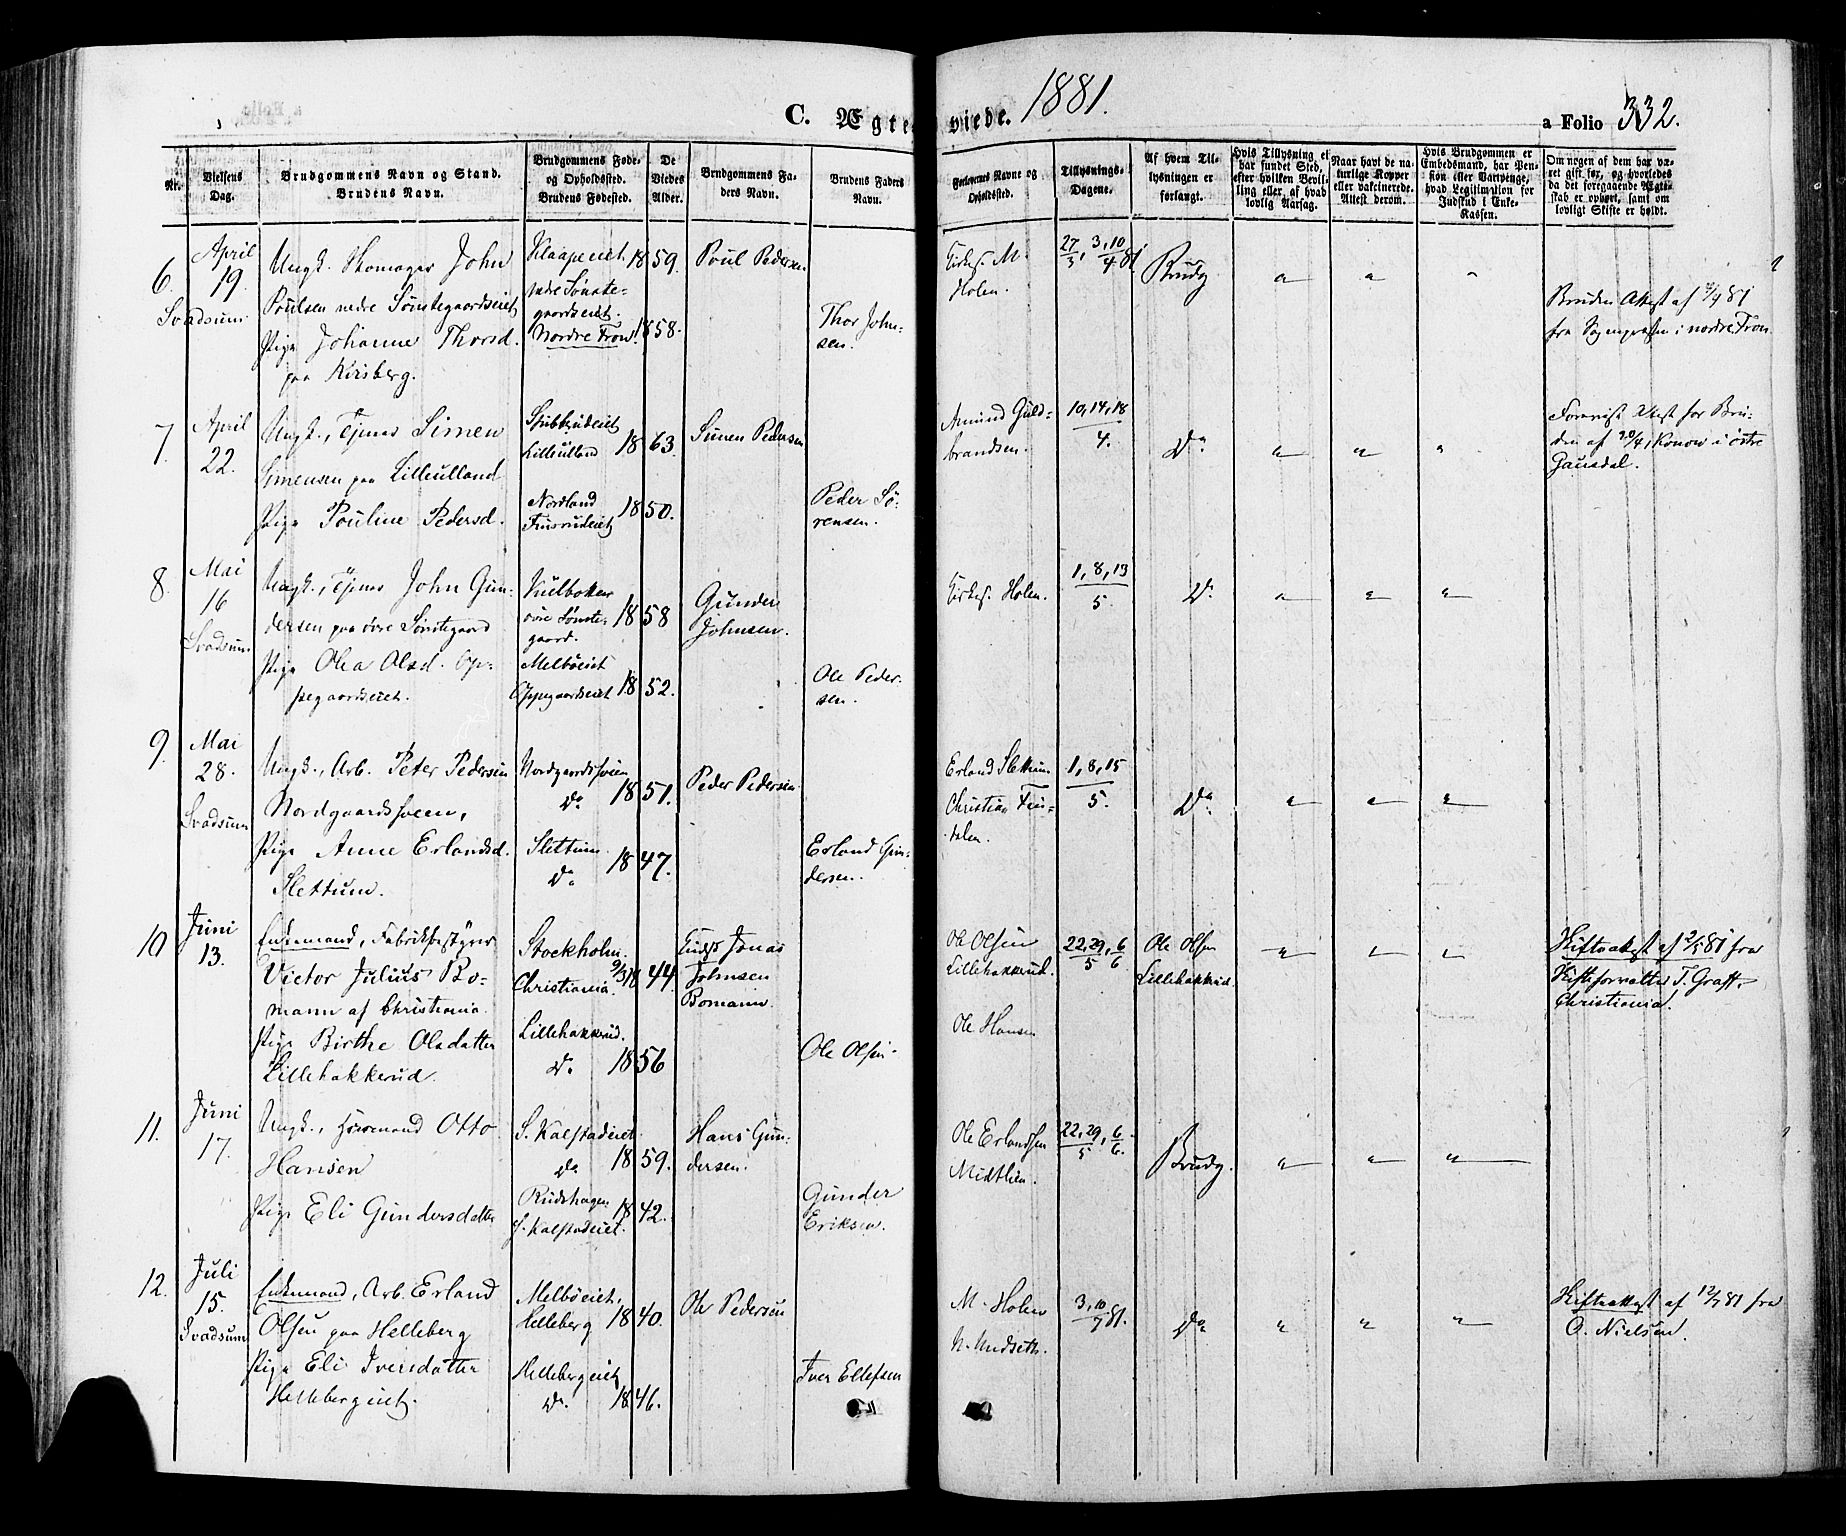 C. Ægteviede. 1881.
a Folio 332.
Nr.
Vielsens Dag.
Brudgommens Navn og Stand.
Brudens Navn.
Brudgommens Føde-
og Opholdssted.
Brudens Fødested.
De
Viedes
Alder.
Brudgommens Fa-
ders Navn.
Brudens Faders
Navn.
Forlovernes Navne og
Opholdssted.
Tillysnings-
Dagene.
Af hvem Til-
lysningen er
forlangt.
Hvis Tillysning ei
har fundet Sted,
efter hvilken Bevil-
ling eller af hvad
lovlig Aarsag.
Naar havt de na-
turlige Kopper
eller vakcinerede.
Attest derom.
Hvis Brudgommen er
Embedsmand, har Pen-
sion eller Vartpenge,
hvad Legitimation for
Indskud i Enke-
Kassen.
Om nogen af dem har væ-
ret gift før, og hvorledes
da det foregaaende Ægte-
skab er ophørt, samt om
lovligt Skifte er holdt.
6.
April
19.
Svadsum
Ungk. Skomager John
Poulsen nedre Sønstegaardseiet
Pige Johanne Thorsd.
paa Kirsberg.
Klaapeeiet
nedre Sønste-
gaardseiet.
Nordre Fron.
1859.
1858.
Poul Pedersen
Thor John-
sen.
Kirkes. M.
Holen.
27/3, 3,10/4 81
Brudg.
Brudens Attest af 81
fra Sognepresten i nordre Fron
7.
April
22.
Ungk., Tjener Simen
Simensen paa Lilleulland
Pige Pouline Pedersd.
Lilleulland
Nordland
Finsrudeiet
1863.
1850.
Simen Pedersen
Peder Sø-
rensen.
Amund Guld-
brandsen.
10,14,18
4.
Do
Forevist Attest for Bru-
den af 20/4, Konow i østre
Gausdal.
8.
Mai
16
Svadsum
Ungk., Tjener John Gun-
dersen paa øvre Sønstegaard
Pige Olea Olsd. Op-
pegaardseiet.
Kulbakken
øvre Sønste-
gaard.
Melbøeiet
Oppegaardseiet
1858
1852.
Gunder
Johnsen.
Ole Peder-
sen.
Kirkes. Holen.
1, 8, 13
5.
Do
9.
Mai
28.
Svadsum
Ungk., Arb. Peter Pedersen
Nordgaardssveen,
Pige Anne Erlandsd.
Slettum.
Nordgaardssveen
Do
Slettum
Do
1851.
1847.
Peder Pedersen
Erland Gun-
dersen.
Erland Slettum
Christian Fin-
dalen.
1, 8, 15
5.
Do
10
Juni
13.
Enkemand, Fabrikbestyrer
Victor Julius Bo-
mann af Christiania.
Pige Birthe Olsdatter
Lillehakkerud.
Stockholm.
Christiania.
Lillehakkerud.
Do
9/3 1844.
1856
Jonas
Johnsen
Bomann.
Ole Olsen
Ole Olsen
Lillehakkerud.
Ole Hansen
22,29/5, 6/6
Ole Olsen
Lillehakkerud.
Skifteattest af 2/5 81 fra
Skifteforvalter T. Graff,
Christiania.
11.
Juni
17.
Ungk., Huusmand Otto
Hansen
Pige Eli Gundersdatter
S. Kalstadeiet
Do
Rudshagen
S. Kalstadeiet.
1859.
1842.
Hans Gun-
dersen.
Gunder
Eriksen.
Ole Erlandsen
Midtlien.
22,29/5, 6/6.
Brudg.
12.
Juli
15.
Svadsum
Enkemand, Arb. Erland
Olsen paa Helleberg
Pige Eli Iversdatter
Hellebergeiet.
Melbøeiet,
Helleberg
Hellebergeiet
Do
1840.
1846.
Ole Pedersen
Iver Ellefsen
M. Holen
N. Undseth.
3, 10/7 81.
Do
Skifteattest af 12/7 81 fra
O. Nielsen.